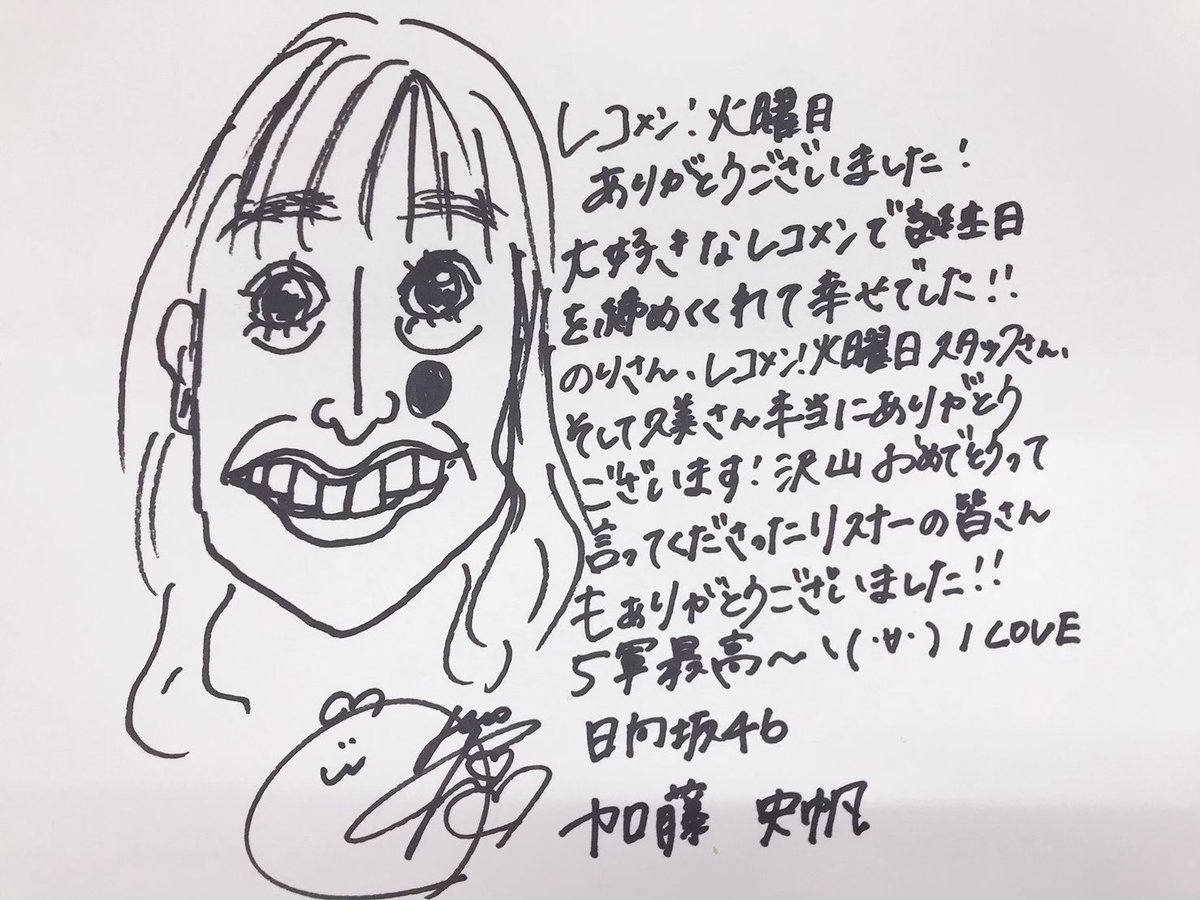 レコメン!火曜日
ありがとうございました!
大好きなレコメンで誕生日
を締めくくれて幸せでした!!
のりさん、レコメン!火曜日スタッフさん、
そして久美さん本当にありがとう
ございます!沢山おめでとうって
言ってくださったリスナーの皆さん
もありがとうございました!!
5軍最高〜ヽ(・∀・)ノLOVE
日向坂46
加藤 史帆